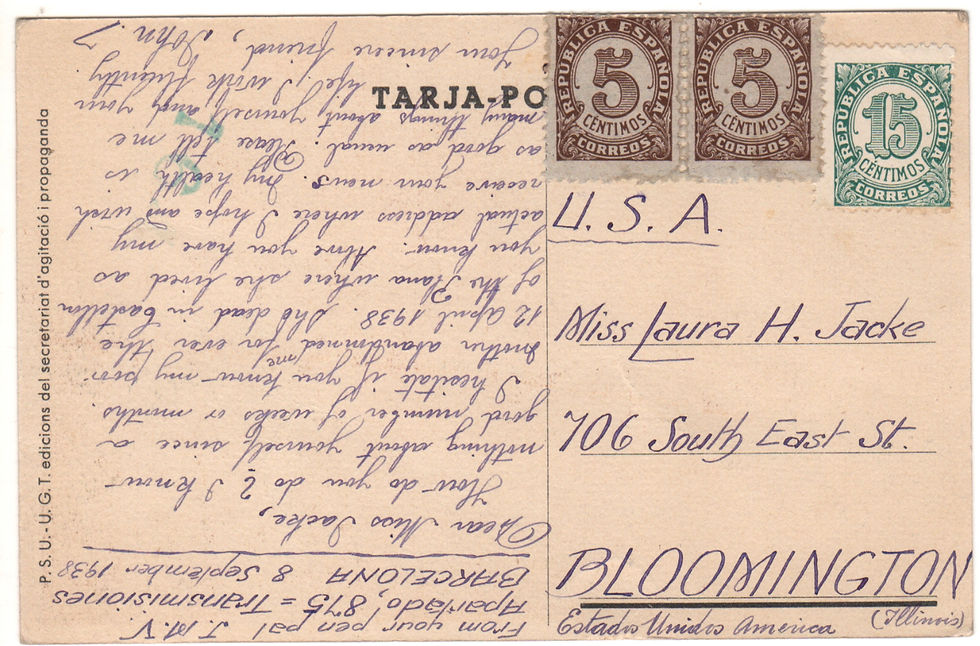 TARJA-PO
REPUBLICA ESPAÑOLA
5
CÉNTIMOS
CORREOS
REPUBLICA ESPAÑOLA
5
CÉNTIMOS
CORREOS
REPUBLICA ESPAÑOLA
15
CÉNTIMOS
CORREOS
U.S.A.
Miss Laura H. Jacke
706 South East St.
BLOOMINGTON
(Illinois)
Estados Unidos America
P.S.U.-U.G.T. edicions del secretariat d'agitació i propaganda
From your pen pal J.M.V.
Apartado, 875 = Transmisiones
BARCELONA 8 September 1938
Dear Miss Jacke,
How do you do? I know
nothing about yourself, since a
good number of weeks or months
I hesitate if you know my poor
mother abandonned me for ever the
12 April 1938. She dead in Castellon
of the Plana where she lived as
you know. Above you have my
actual address where I hope and wich
receive your news. My health is
as good as usual. Please tell me
many things about yourself and your
life. I work fluently
Your sincere friend, John